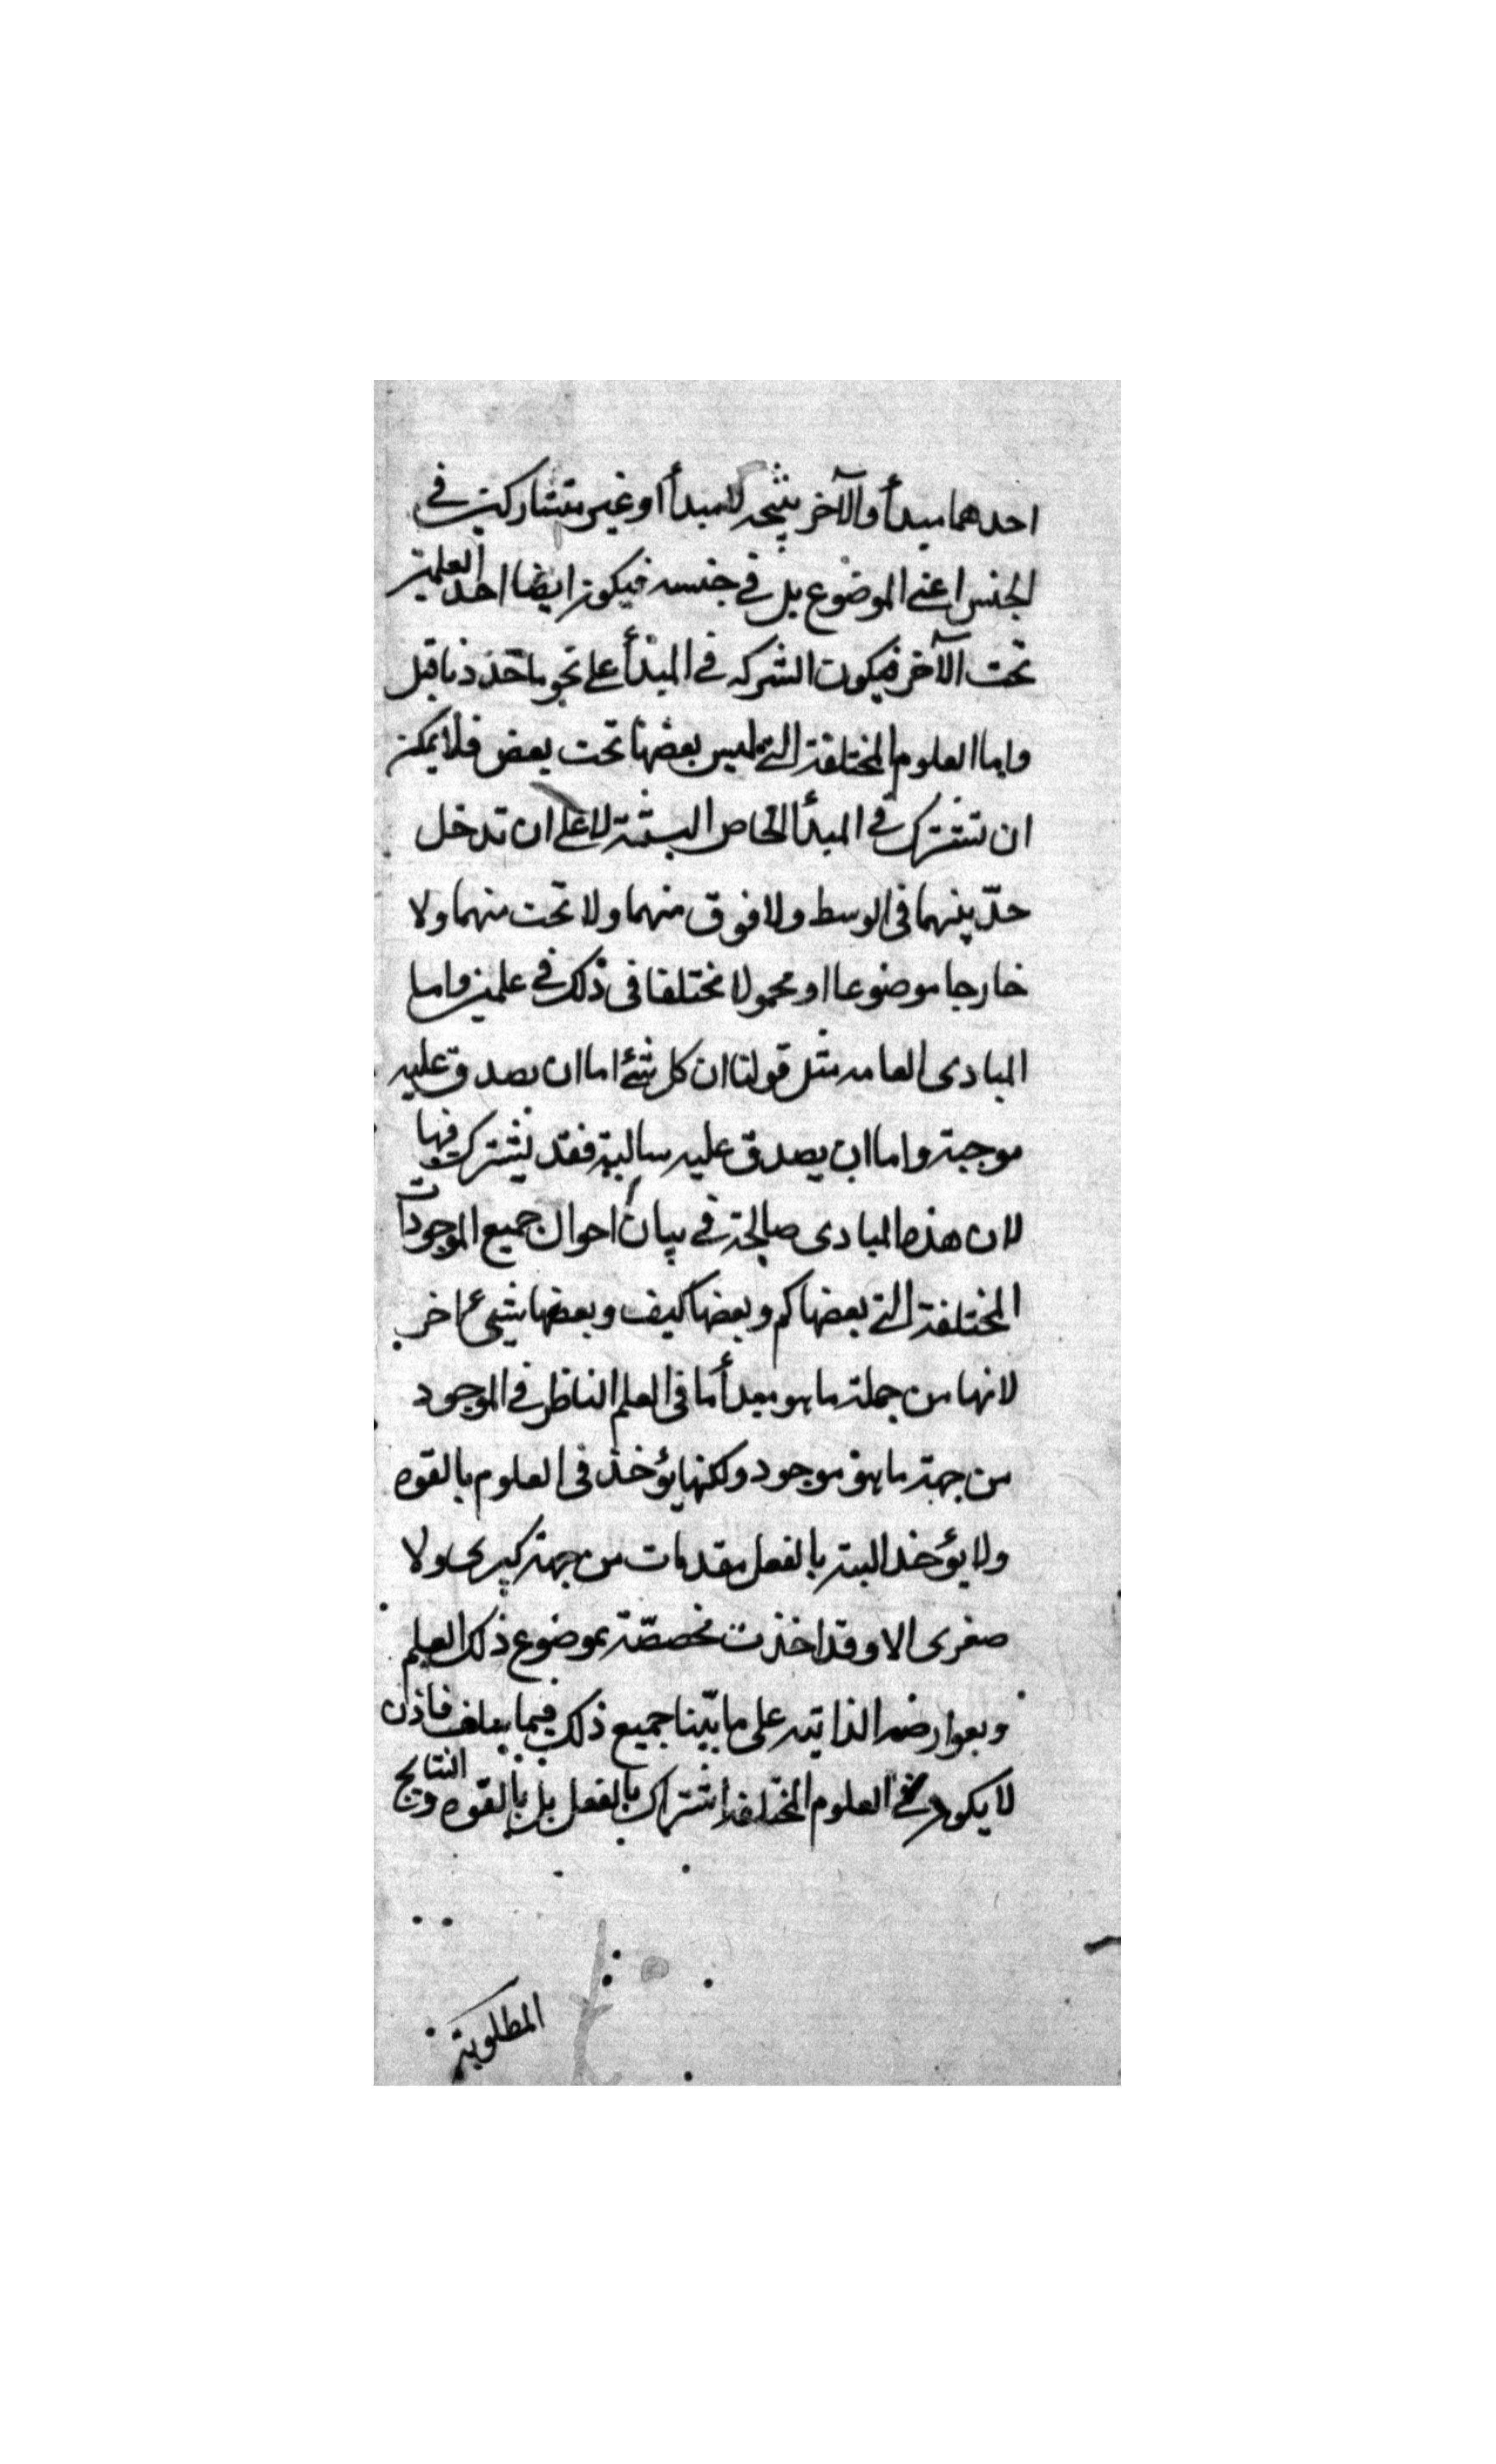 احدهما مبدأ والآخر نتيجة للمبدأ او غير متشاركين في
الجنس اعني الموضوع بل في جنسه فيكون ايضا احد العلمين
تحت الآخر فيكون الشركه في المبدأ على نحو ما حددناقبل
واما العلوم المختلفة التي ليس بعضها تحت بعض فلا يمكن
ان تشترك في المبدأ الخاص البتة لا على ان تدخل
حدّ بينهما في الوسط ولا فوق منهما ولا تحت منهما ولا
خارجا موضوعا او محمولا مختلفا في ذلك في علمين واما
المبادى العامه مثل قولنا ان كل شئ اما ان يصدق عليه
موجبة واما ان يصدق عليه سالبة فقد يشترك فيها
لان هذه المبادى صالحة في بيان احوال جميع الموجودات
المختلفة التي بعضها كم وبعضها كيف وبعضها شيئ اخر
لانها من جملة ما هو مبدأ ما في العلم الناظر في الموجود
من جهة ما هو موجود ولكنها يؤخذ في العلوم بالقوه
ولا يؤخذ البتة بالفعل مقدمات من جهة كبرى ولا
صغرى الا وقد اخذت مخصصّة بموضوع ذلك العلم
وبعوارضه الذاتيه على ما بيّنا جميع ذلك فيما سلف فاذن
لا يكون في العلوم المختلفة اشتراك بالفعل بل بالقوّه والنتايج
المطلوبة